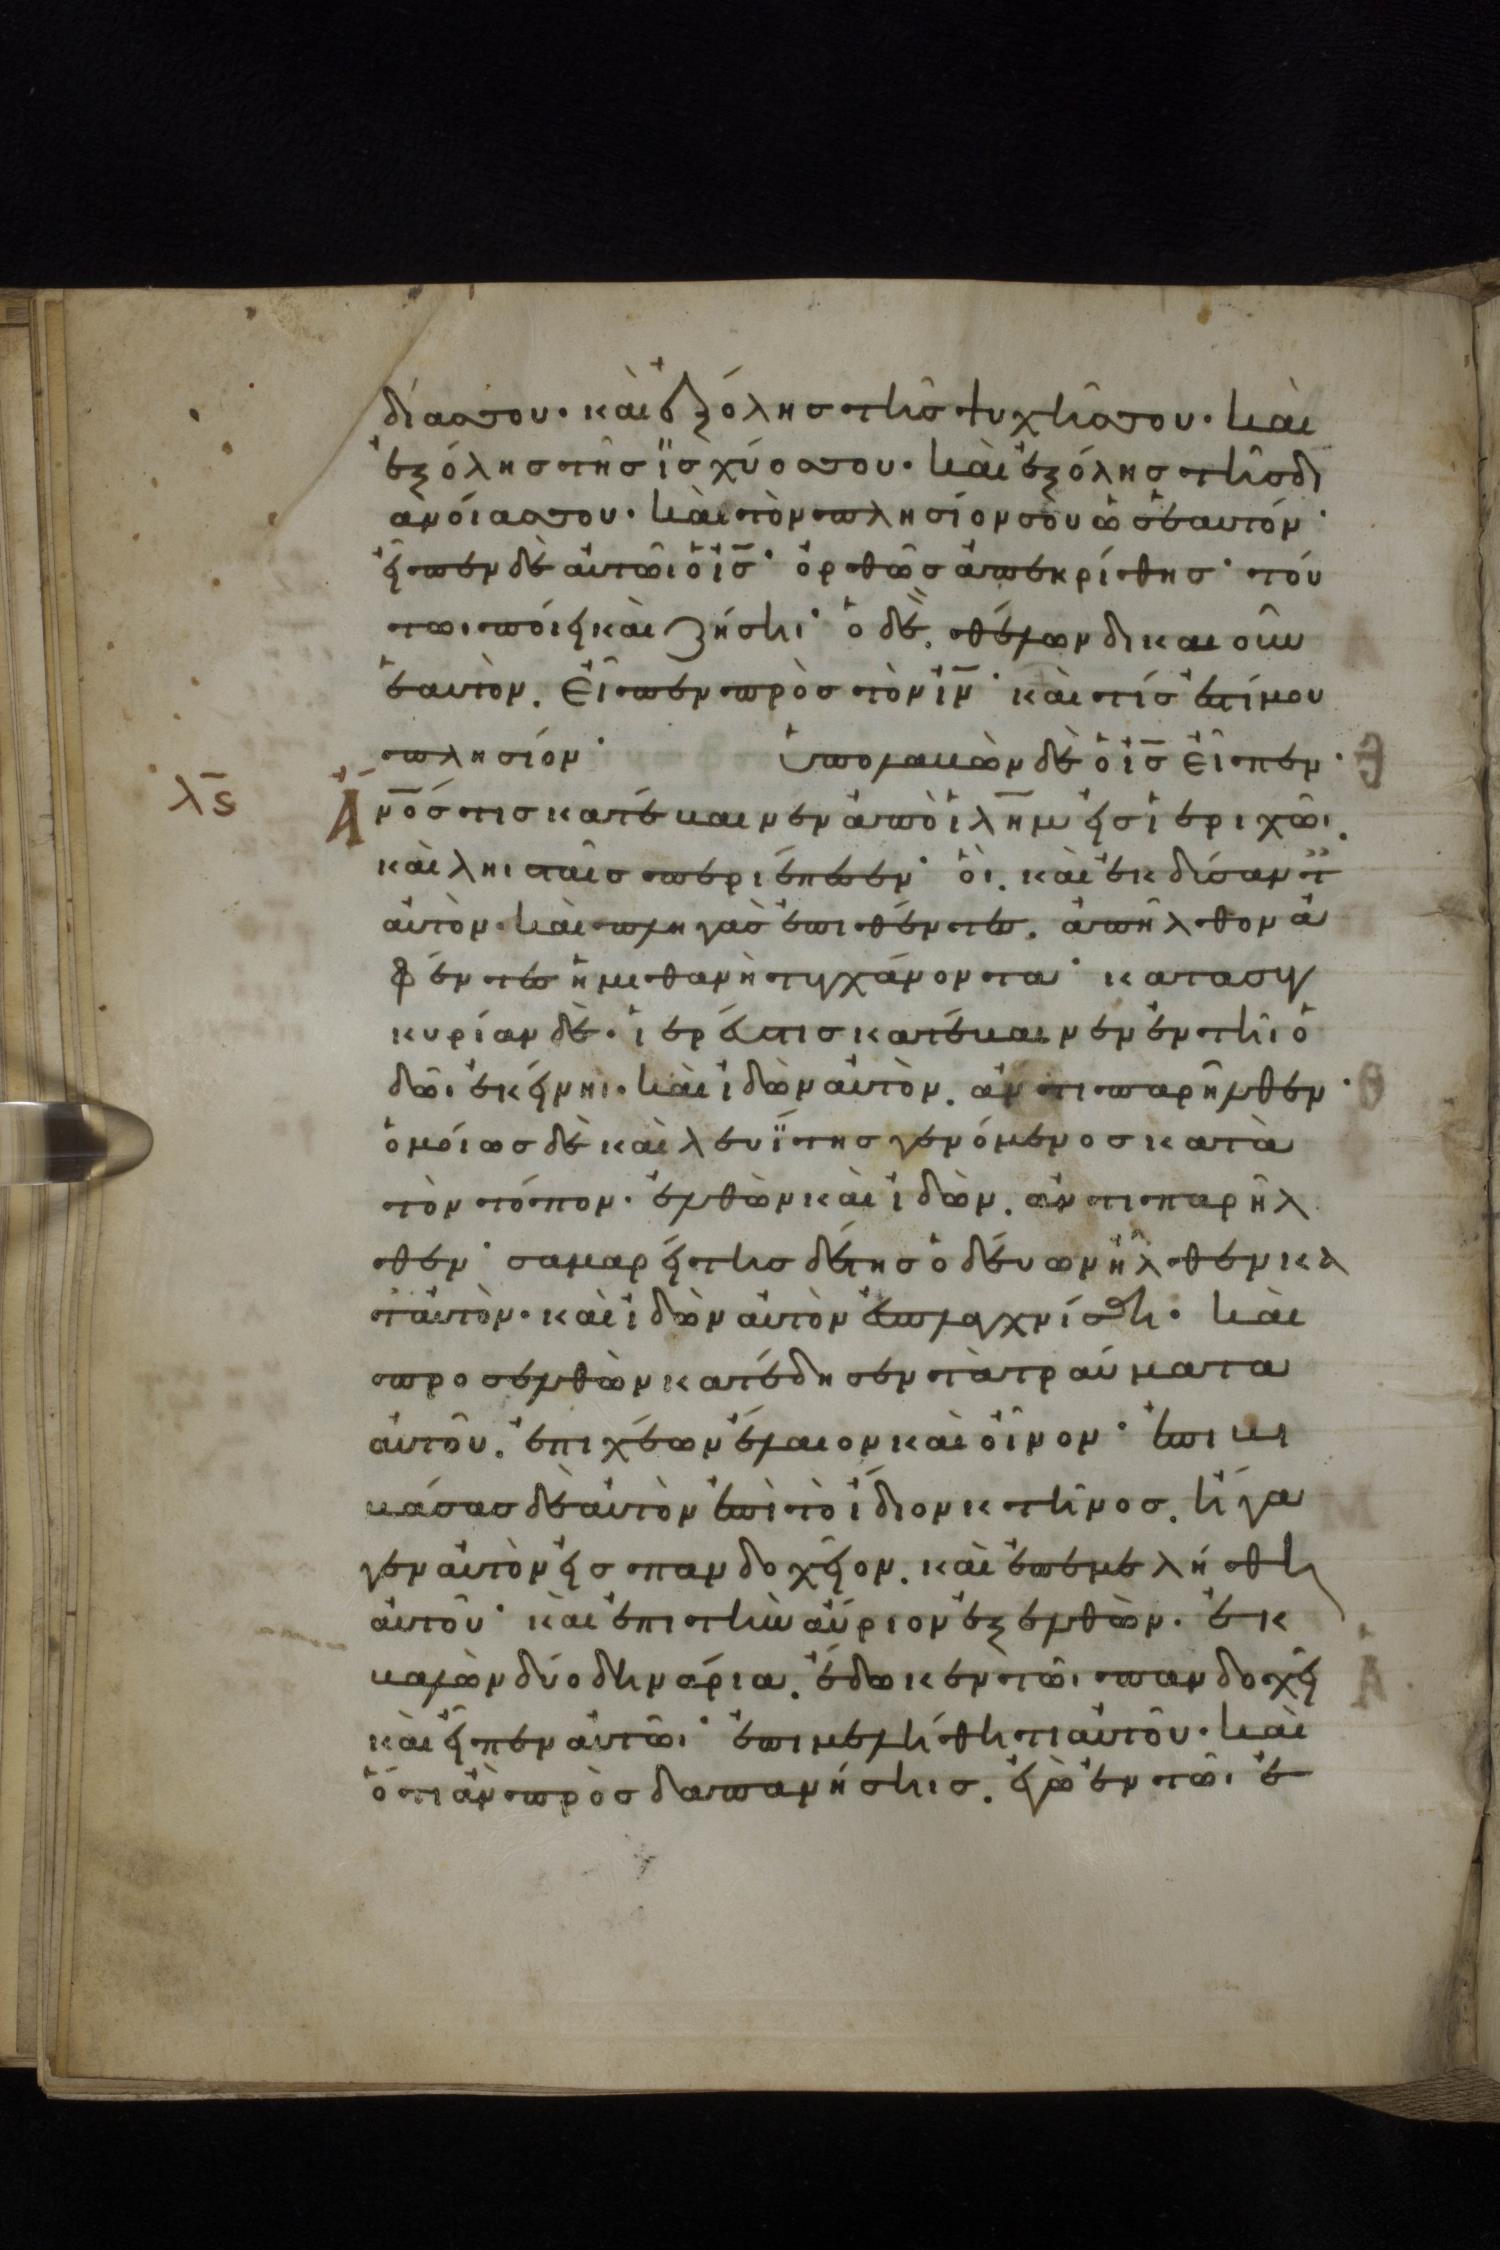 δίας σου· καὶ ἐξ ὅλης τῆς ψυχῆς σου· καὶ
ἐξ ὅλης τῆς ϊσχύος σου· καὶ ἐξ ὅλης τῆς δι
ανοίας σου· καὶ τὸν πλησίον σου ὡς ἑαυτόν·
εἶπεν δὲ αὐτῶι ὁ ις̅· ὀρθῶς ἀπεκρίθης· τού
τωι ποίει καὶ ζήσηι· ὁ δὲ, θέλων δικαιοῦν
ἑαυτὸν. εἶπεν πρὸς τὸν ιν̅· καὶ τίς ἐστί μου
πλησίον· ὑπολαβὼν δὲ ὁ ις̅ εἶπεν·
λϛ̅
Ἄνο̅ς τις κατέβαινεν ἀπὸ ιλημ̅ εἰς ἱεριχῶι.
καὶ ληισταῖς περιέπεσεν· οἱ. καὶ ἐκδύσαντ
αὐτὸν· καὶ πληγὰς ἐπιθέντες. ἀπῆλθον ἀ
φέντες ἡμιθανῆ τυγχάνοντα· κατὰ συγ
κυρίαν δὲ· ἱερεύς τις κατέβαινεν ἐν τῆι ὁ
δῶι ἐκείνηι· καὶ ἰδὼν αὐτὸν. ἀντιπαρῆλθεν·
ὁμοίως δὲ καὶ λευϊτης γενόμενος κατὰ
τὸν τόπον· ἐλθὼν καὶ ἰδὼν. ἀντιπαρῆλ
θεν· σαμαρείτης δέ τις ὁδεύων ἦλθεν κα
τ' αὐτὸν· καὶ ἰδὼν αὐτὸν ἐσπλαγχνίσθη· καὶ
προσελθὼν κατέδησεν τὰ τραύματα
αὐτοῦ. ἐπιχέων ἔλαιον καὶ οἶνον· ἐπιβι
βάσας δὲ αὐτὸν ἐπὶ τὸ ἴδιον κτῆνος. ἤγα
γεν αὐτὸν εἰς πανδοχεῖον. καὶ ἐπεμελήθη
αὐτοῦ· καὶ ἐπὶ τὴν αὔριον ἐξελθὼν. ἐκ
βαλὼν δύο δηνάρια. ἔδωκεν τῶι πανδοχεῖ
καὶ εἶπεν αὐτῶι· ἐπιμελήθητι αὐτοῦ· καὶ
ὅτι ἂν προσδαπανήσηις. ἐγὼ ἐν τῶι ἐ